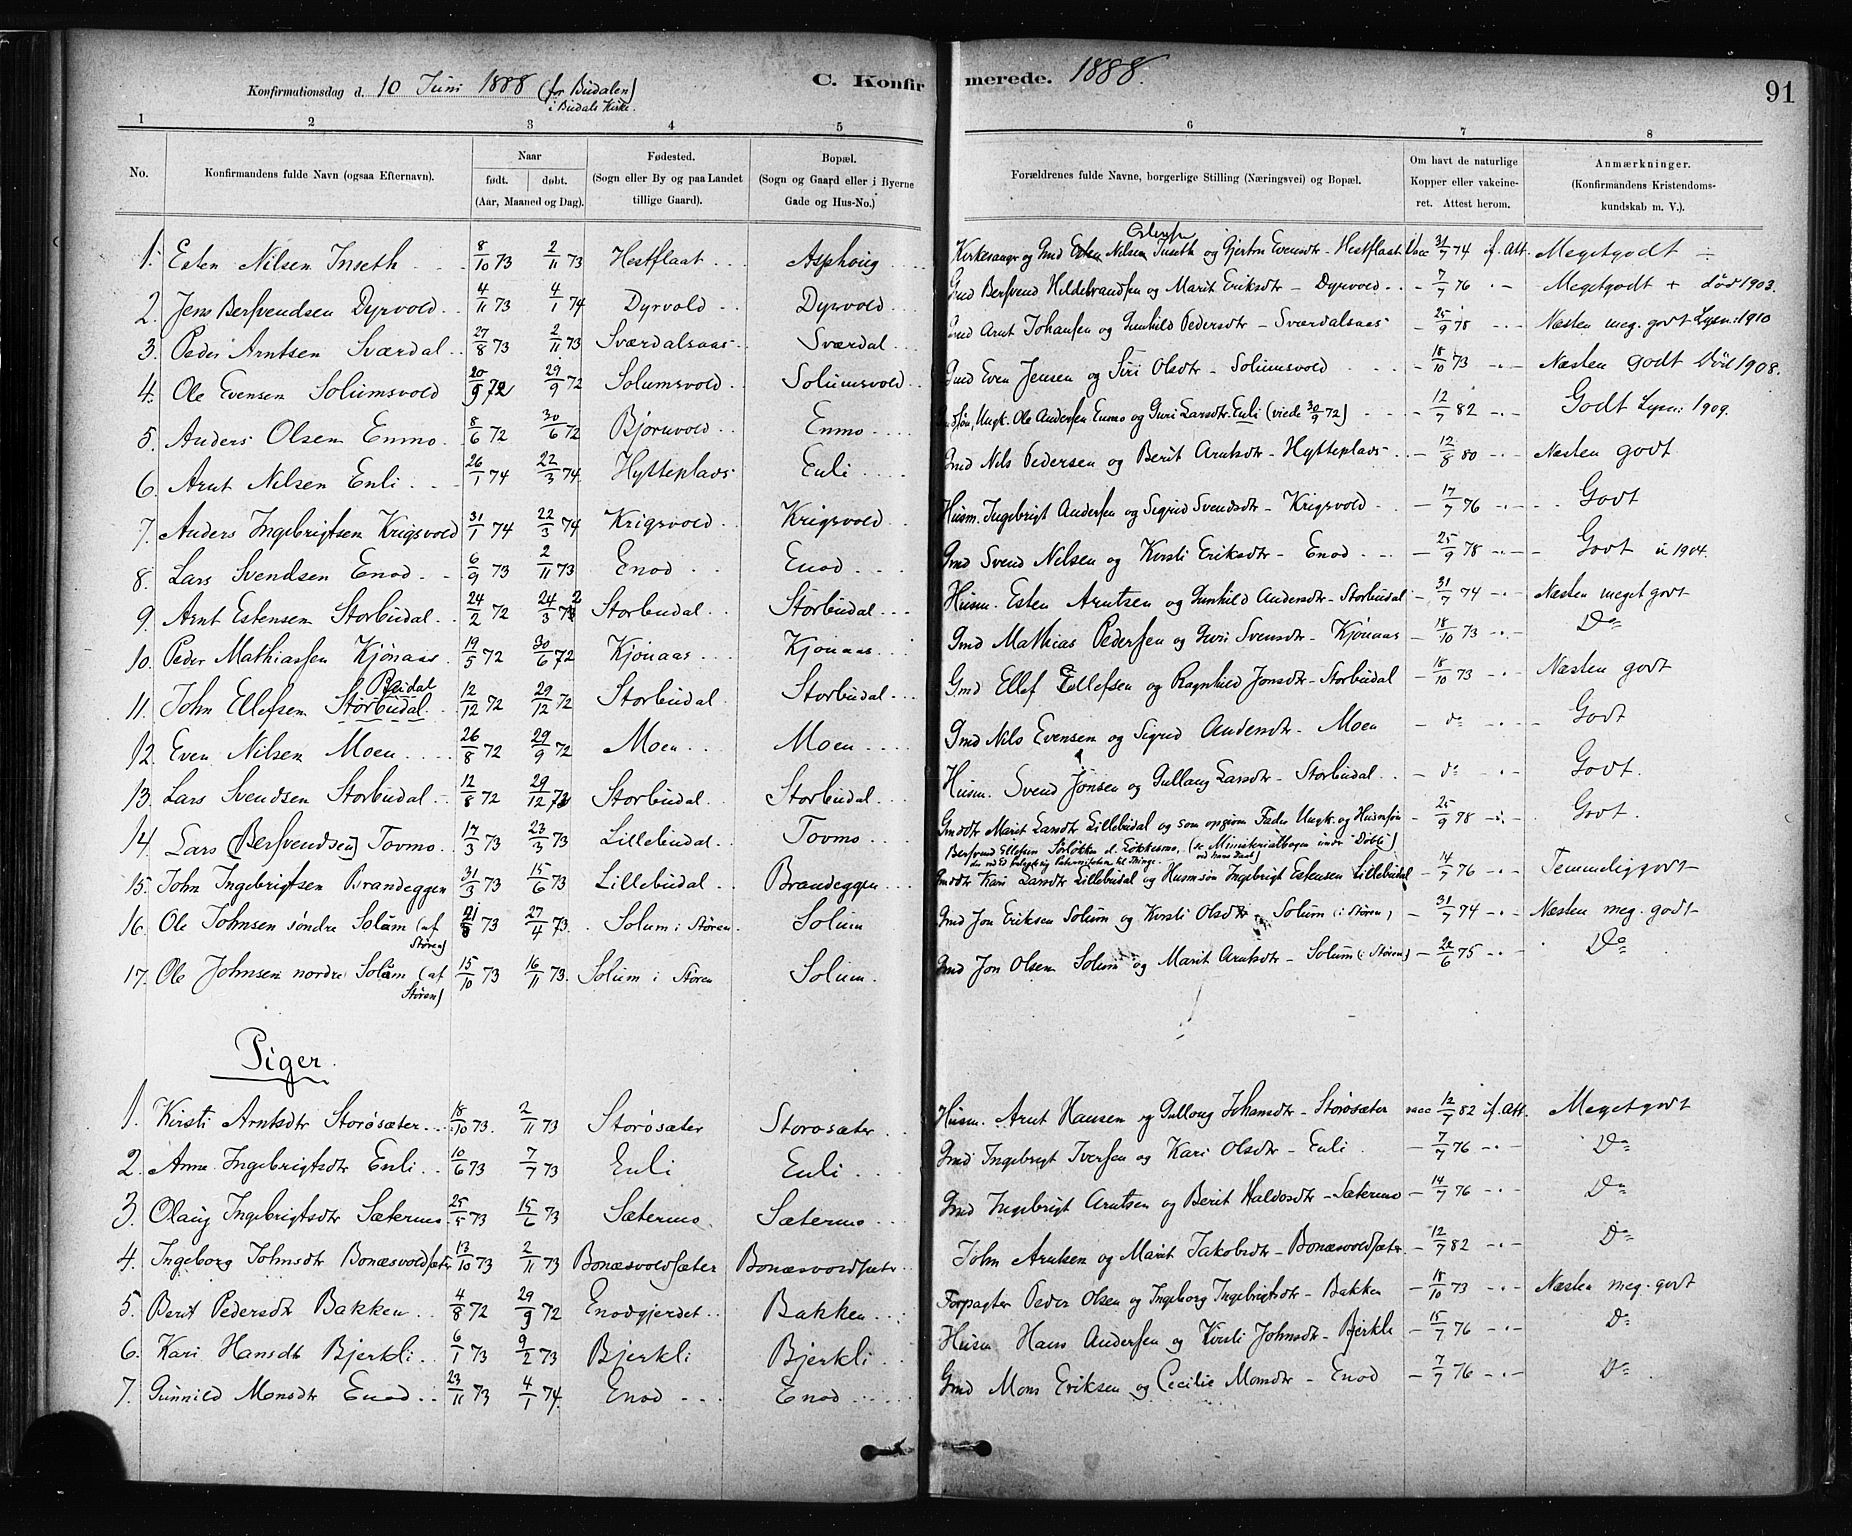 Konfirmationsdag d. 10 Juni 1888 (for Budalen)
i Budals Kirke.
C. Konfirmerede. 1888.
91
1 2 3 4 5 6 7 8
No.
Konfirmandens fulde Navn (ogsaa Efternavn).
Naar
født. døbt.
(Aar, Maaned og Dag).
Fødested.
(Sogn eller By og paa Landet
tillige Gaard).
Bopæl.
(Sogn og Gaard eller i Byerne
Gade og Hus-No.)
Forældrenes fulde Navne, borgerlige Stilling (Næringsvei) og Bopæl.
Om havt de naturlige
Kopper eller vakcine-
ret. Attest herom.
Anmærkninger.
(Konfirmandens Kristendoms-
kundskab m. V.).
1. Esten Nilsen Inseth 8/10 73 2/11 73 Hestflaat Asphoug Kirkesanger og Gmd Nilsen Inseth og Gjertru Evensdtr - Hestflaat Vacc 31/7 74 if. Att. Megetgodt
2. Jens Bersvendsen Dyrvold 4/11 73 4/1 74 Dyrvold Dyrvold Gmd Bersvend Hildebrandsen og Marit Eriksdtr - Dyrvold - 7/7 76 - Megetgodt + död 1903.
3. Peder Arntsen Sværdal 27/8 73 2/11 73 Sværdalsaas Sværdal Gmd Arnt Johansen og Gunhild Pedersdtr - Sværdalsaas - 25/9 78 - Næsten meg. godt Lysn. 1910
4. Ole Evensen Solumsvold 20/9 72 29/9 72 Solumsvold Solumsvold Gmd Even Jensen og Siri Olsdtr - Solumsvold - 18/10 73 - Næsten godt Död 1908.
5. Anders Olsen Enmo 8/6 72 30/6 72 Bjørnvold Enmo Ungk. Ole Andersen Enmo og Guri Larsdtr Enli (viede 30/9 72) - 12/7 82 - Godt Lysn: 1909.
6. Arnt Nilsen Enli 26/1 74 22/3 74 Hytteplads Enli Gmd Nils Pedersen og Berit Arntsdtr - Hytteplads - 12/8 80 - Næsten godt
7. Anders Ingebrigtsen Krigsvold 31/1 74 22/3 74 Krigsvold Krigsvold Husm. Ingebrigt Andersen og Sigrid Svendsdtr - Krigsvold - 17/7 76 - Godt
8. Lars Svendsen Enod 6/9 73 2/11 73 Enod Enod Gmd Svend Nilsen og Kirsti Eriksdtr - Enod - 25/9 78 - Godt u 1904.
9. Arnt Estensen Storbudal 24/2 72 24/3 72 Storbudal Storbudal Husm. Esten Arntsen og Gunhild Andersdtr - Storbudal - 31/7 74 - Næsten meget godt
10. Peder Mathiassen Kjönaas 19/5 72 30/6 72 Kjönaas Kjönaas Gmd Mathias Pedersen og Guri Svensdtr - Kjönaas - 18/10 73 - Do
11. John Ellefsen Storbudal 12/12 72 29/12 72 Storbudal Storbudal Gmd Ellef Ellefsen og Ragnhild Jonsdtr - Storbudal - 18/10 73 - Næsten godt
12. Even Nilsen Moen 26/8 72 29/9 72 Moen Moen Gmd Nils Evensen og Sigrid Andersdtr - Moen - do - Godt
13. Lars Svendsen Storbudal 12/8 72 29/12 72 Storbudal Storbudal Husm. Svend Jönsen og Gullaug Larsdtr - Storbudal - do - Godt.
14. Lars (Bersvendsen) Tovmo 17/3 73 23/3 73 Lillebudal Tovmo Gmdtr Marit Larsdtr Lillebudal og som opgiven Fader Ungk. og Husmsön - 25/9 78 - Godt.
Bersvend Ellefsen (se Ministerialbogen under Döbte)
15. John Ingebrigtsen Brandeggen 31/3 73 15/6 73 Lillebudal Brandeggen Gmdtr Kari Larsdtr Lillebudal og Husmsön Ingebrigt Estensen Lillebudal - 14/7 76 - Temmelig godt
16. Ole Johnsen søndre Solum (af Støren) 73 27/4 73 Solum i Støren Solum Gmd Jon Eriksen Solum og Kirsti Olsdtr - Solum (i Støren) - 31/7 74 - Næsten meg. godt
17. Ole Johnsen nordre Solum (af Støren) 15/10 73 16/11 73 Solum i Støren Solum Gmd Jon Olsen Solum og Marit Arntsdtr - Solum (i Støren) - 22/6 75 - Do
Piger.
1. Kirsti Arntsdtr Storøsæter 18/10 73 2/11 73 Storøsæter Storøsæter Husm. Arnt Hansen og Gullaug Johansdtr - Storøsæter vacc 12/7 82 if. Att. Megetgodt
2. Anne Ingebrigtsdtr Enli 10/6 73 7/7 73 Enli Enli Gmd Ingebrigt Iversen og Kari Olsdtr - Enli - 7/7 76 - Do
3. Olaug Ingebrigtsdtr Sætermo 25/5 73 15/6 73 Sætermo Sætermo Gmd Ingebrigt Arntsen og Berit Haldosdtr - Sætermo - 14/7 76 - Do
4. Ingeborg Johnsdtr Bonæsvoldsæter 13/10 73 2/11 73 Bonæsvoldsæter Bonæsvoldsæter John Arntsen og Marit Jakobsdtr - Bonæsvoldsæter - 12/7 82 - Do
5. Berit Pedersdtr Bakken 4/8 72 29/9 72 Enodgjerdet Bakken Forpagter Peder Olsen og Ingeborg Ingebrigtsdtr - Bakken - 18/10 73 - Næsten meg. godt
6. Kari Hansdtr Bjerkli 6/1 73 9/2 73 Bjerkli Bjerkli Husm Hans Andersen og Kirsti Johnsdtr - Bjerkli - 15/7 76 - Do
7. Gunnild Monsdtr Enod 23/11 73 4/1 74 Enod Enod Gmd Mons Eriksen og Cecilie Monsdtr - Enod - 7/7 76 - Do